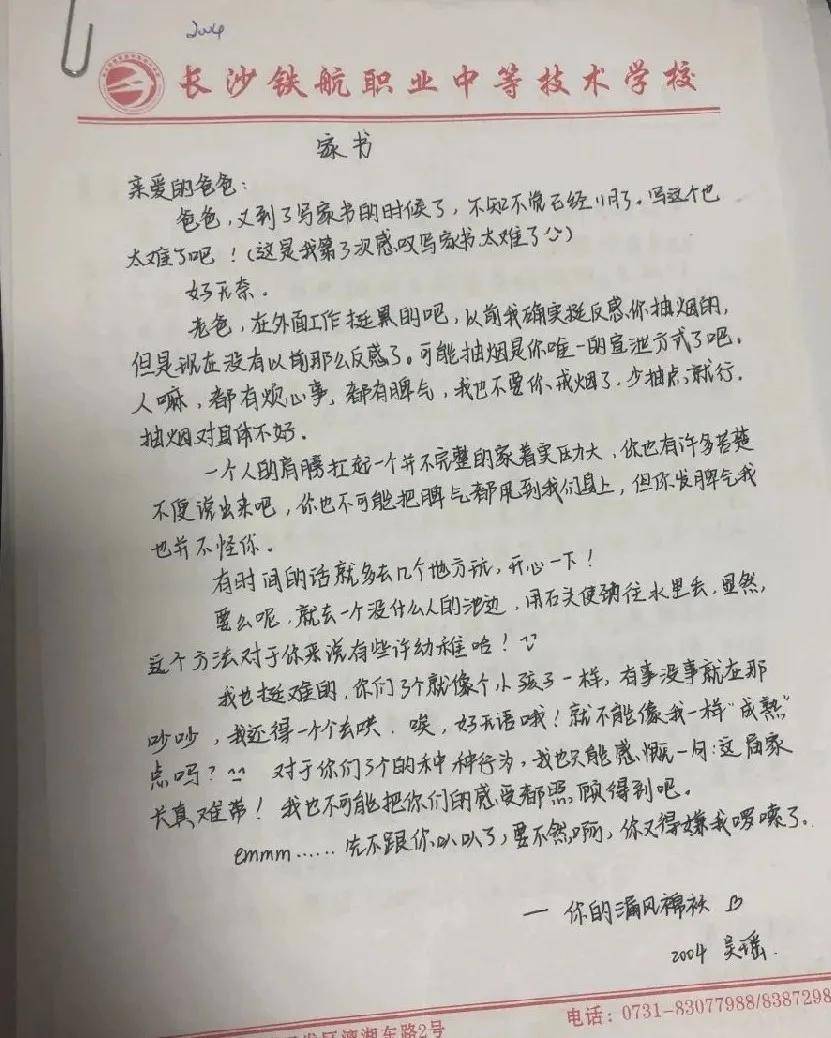 2004
长沙铁航职业中等技术学校
家书
亲爱的爸爸：
爸爸，又到了写家书的时候了，不知不觉已经11月了。写这个也
太难了吧！（这是我第3次感叹写家书太难了）
好无奈。
老爸，在外面工作挺累的吧，以前我确实挺反感你抽烟的，
但是现在没有以前那么反感了。可能抽烟是你唯一的宣泄方式了吧。
人嘛，都有烦心事，都有脾气，我也不要你戒烟了，少抽点就行。
抽烟对身体不好。
一个人的肩膀扛起一个并不完整的家着实压力大，你也有许多苦楚
不便说出来吧，你也不可能把脾气都甩到我们身上，但你发脾气我
也并不怪你。
有时间的话就多去几个地方玩，开心一下！
要么呢，就去一个没什么人的池边，用石头使劲往水里丢，显然，
这个方法对于你来说有些许幼稚哈！
我也挺难的，你们3个就像个小孩子一样，有事没事就在那
吵吵，我还得一个个去哄，唉，好无语哦！就不能像我一样“成熟”
点吗？^^ 对于你们3个的种种行为，我也只能感慨一句：这届家
长真难带！我也不可能把你们的感受都照顾得到吧。
emmm……先不跟你叭叭了，要不然啊，你又得嫌我啰嗦了。
— 你的漏风棉袄
2004 吴瑶.
发区漓湖东路2号
电话：0731-83077988/8387298